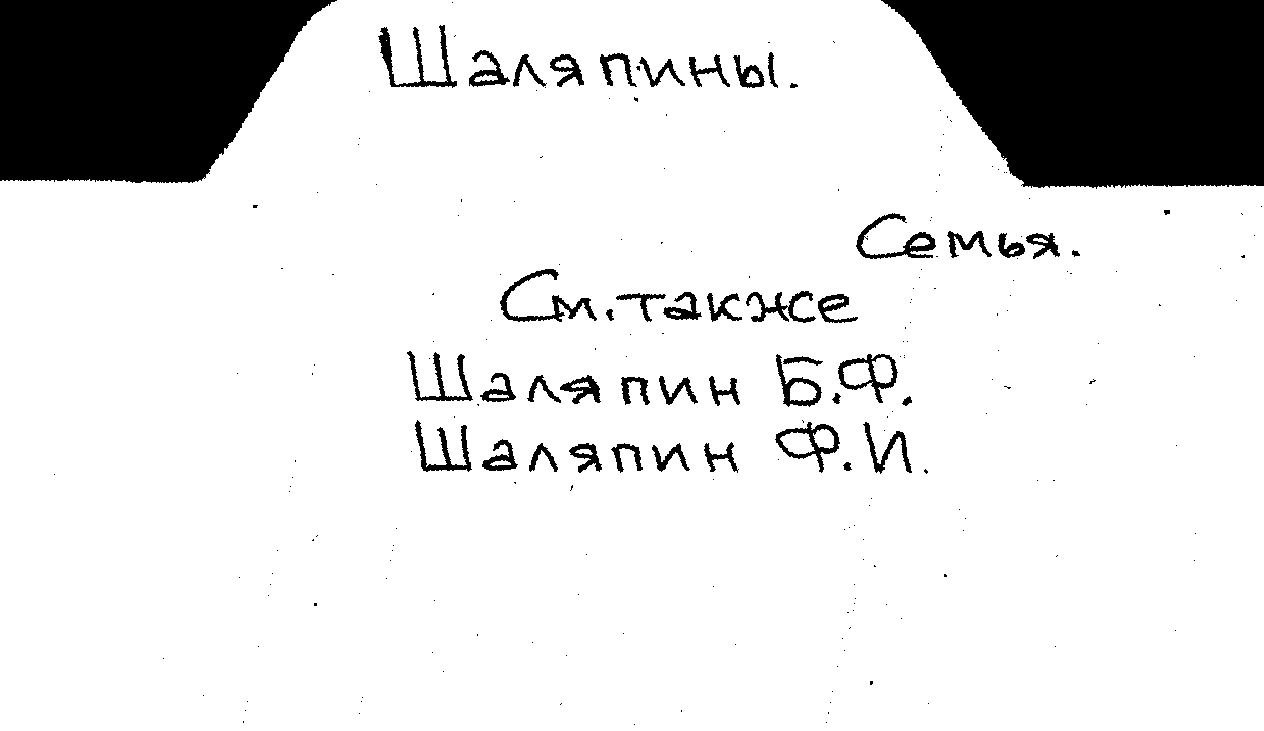 Шаляпины.
Семья.
См. также
Шаляпин Б.Ф.
Шаляпин Ф.И.